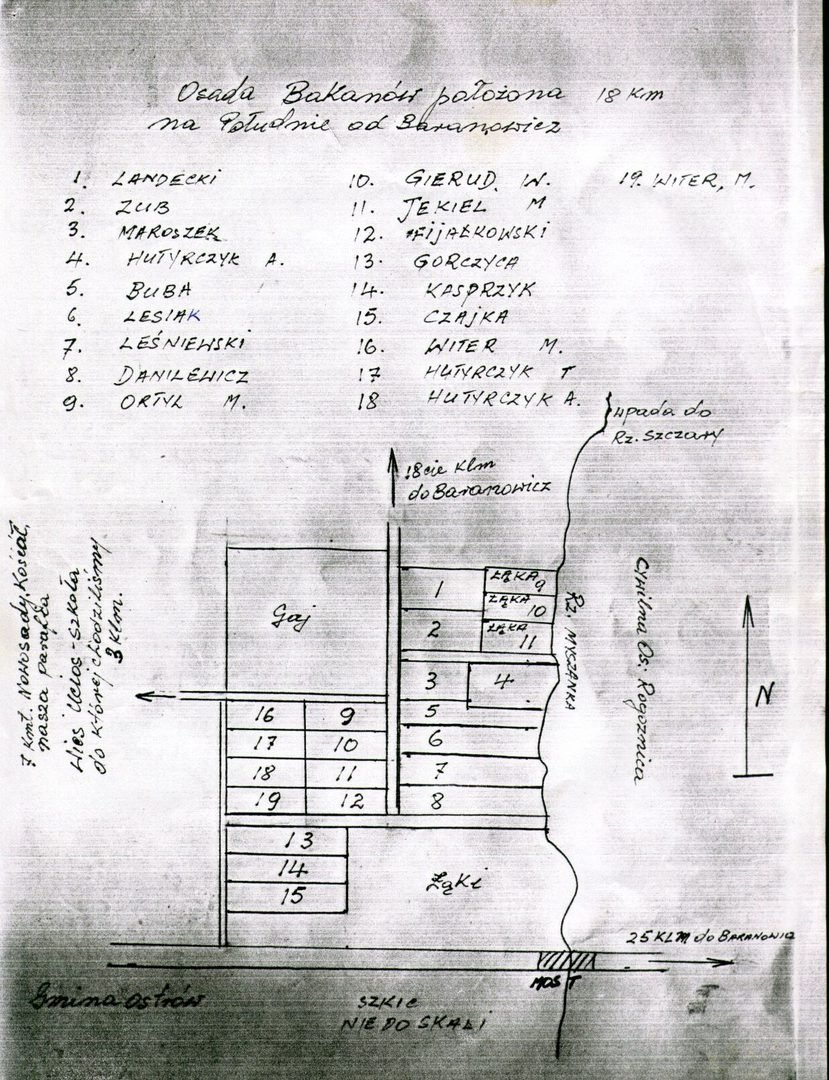 Osada Bakanów położona 18 km
na Południe od Baranowicz
1. LANDECKI
2. ZUB
3. MAROSZEK
4. HUTYRCZYK A.
5. BUBA
6. LESIAK
7. LEŚNIEWSKI
8. DANILEWICZ
9. ORTYL M.
10. GIERUD, W.
11. JEKIEL M
12. FIJAŁKOWSKI
13. GORCZYCA
14. KASPRZYK
15. CZAJKA
16. WITER M.
17 HUTYRCZYK T
18 HUTYRCZYK A.
19. WITER, M.
wpada do
Rz. Szczary
18cie klm
do Baranowicz
7 kmt. Nowosady, Kościół,
nasza parafia
Wieś Ucios - szkoła
do której chodziliśmy
3 klm.
Gaj
1
2
ŁĄKA 9
ŁĄKA 10
ŁĄKA 11
3
4
5
6
7
8
16 9
17 10
18 11
19 12
13
14
15
Łąki
RZ. MYSZANKA
Cywilna Os. Rogoźnica
N
25 KLM do BARANOWIC
MOST
Gmina Ostrów
SZKIC
NIE DO SKALI